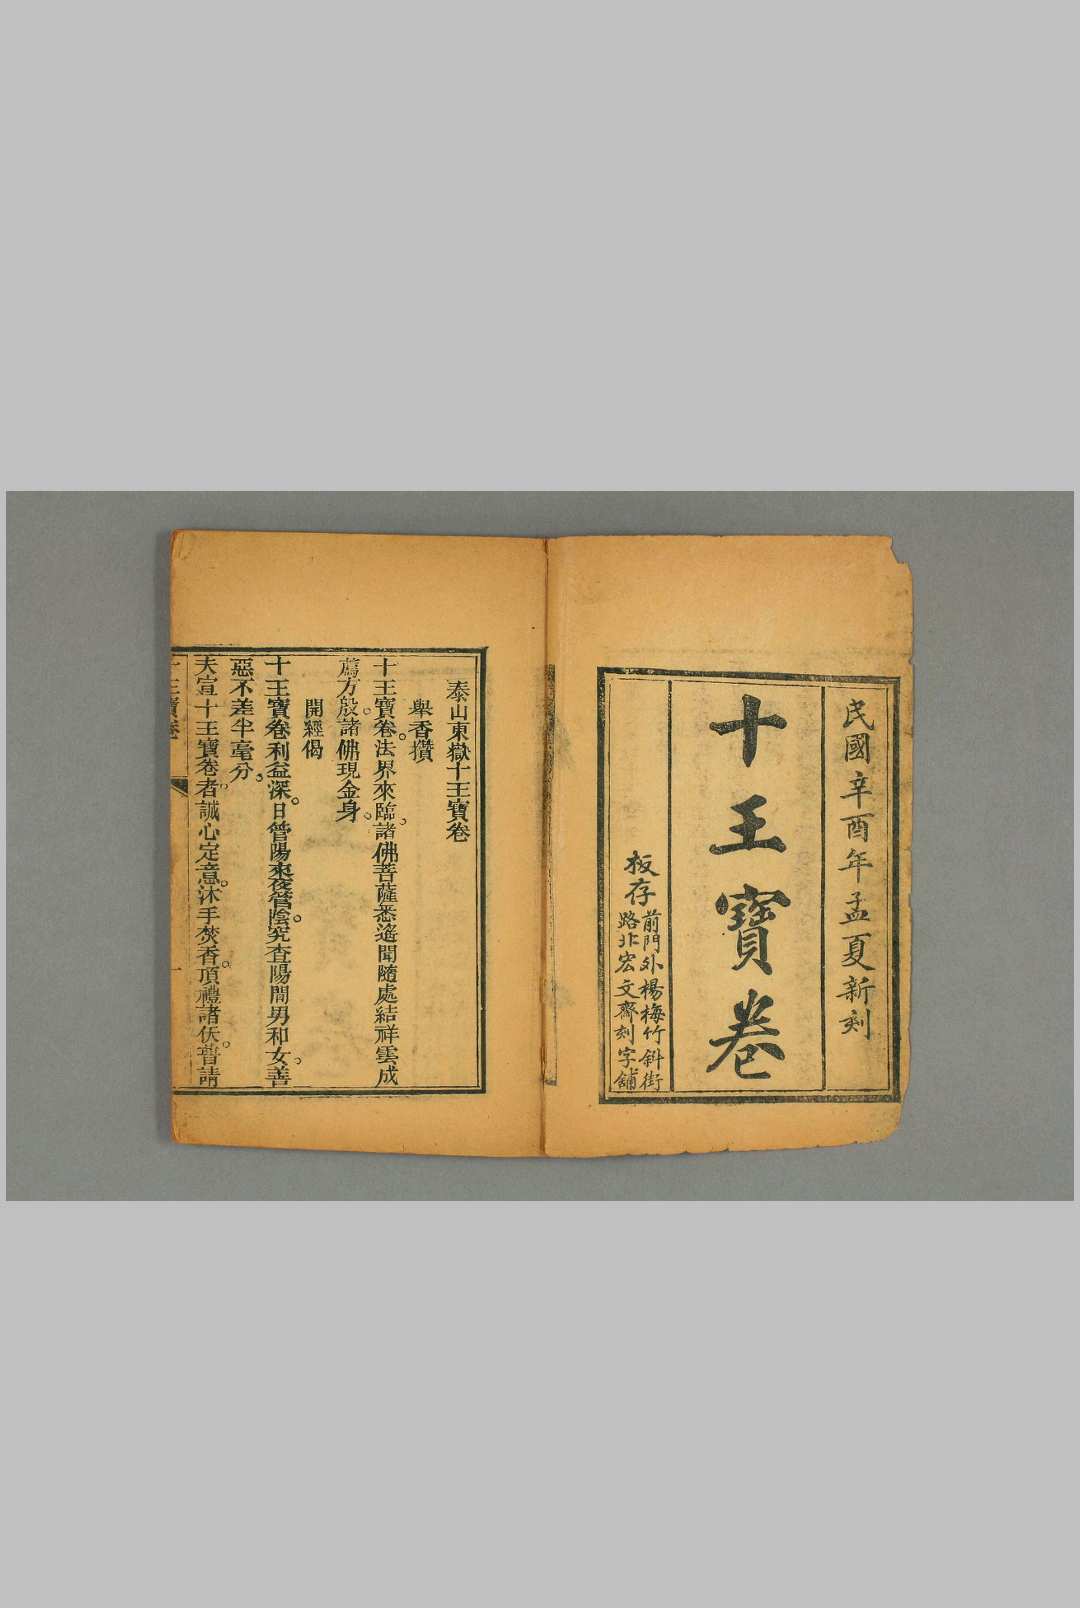 民國辛酉年孟夏新刻
十王寶卷
板存
前門外楊梅竹斜街
路北宏文齋刻字舖
泰山東嶽十王寶卷
舉香讚
十王寶卷。法界來臨。諸佛菩薩悉遙聞隨處結祥雲成
薦方殷。諸佛現金身。
開經偈
十王寶卷利益深。日管陽來夜管陰。究查陽間男和女。善
惡不差半毫分。
夫宣十王寶卷者。誠心定意。沐手焚香。頂禮諸佛。普請
十王寶卷
一